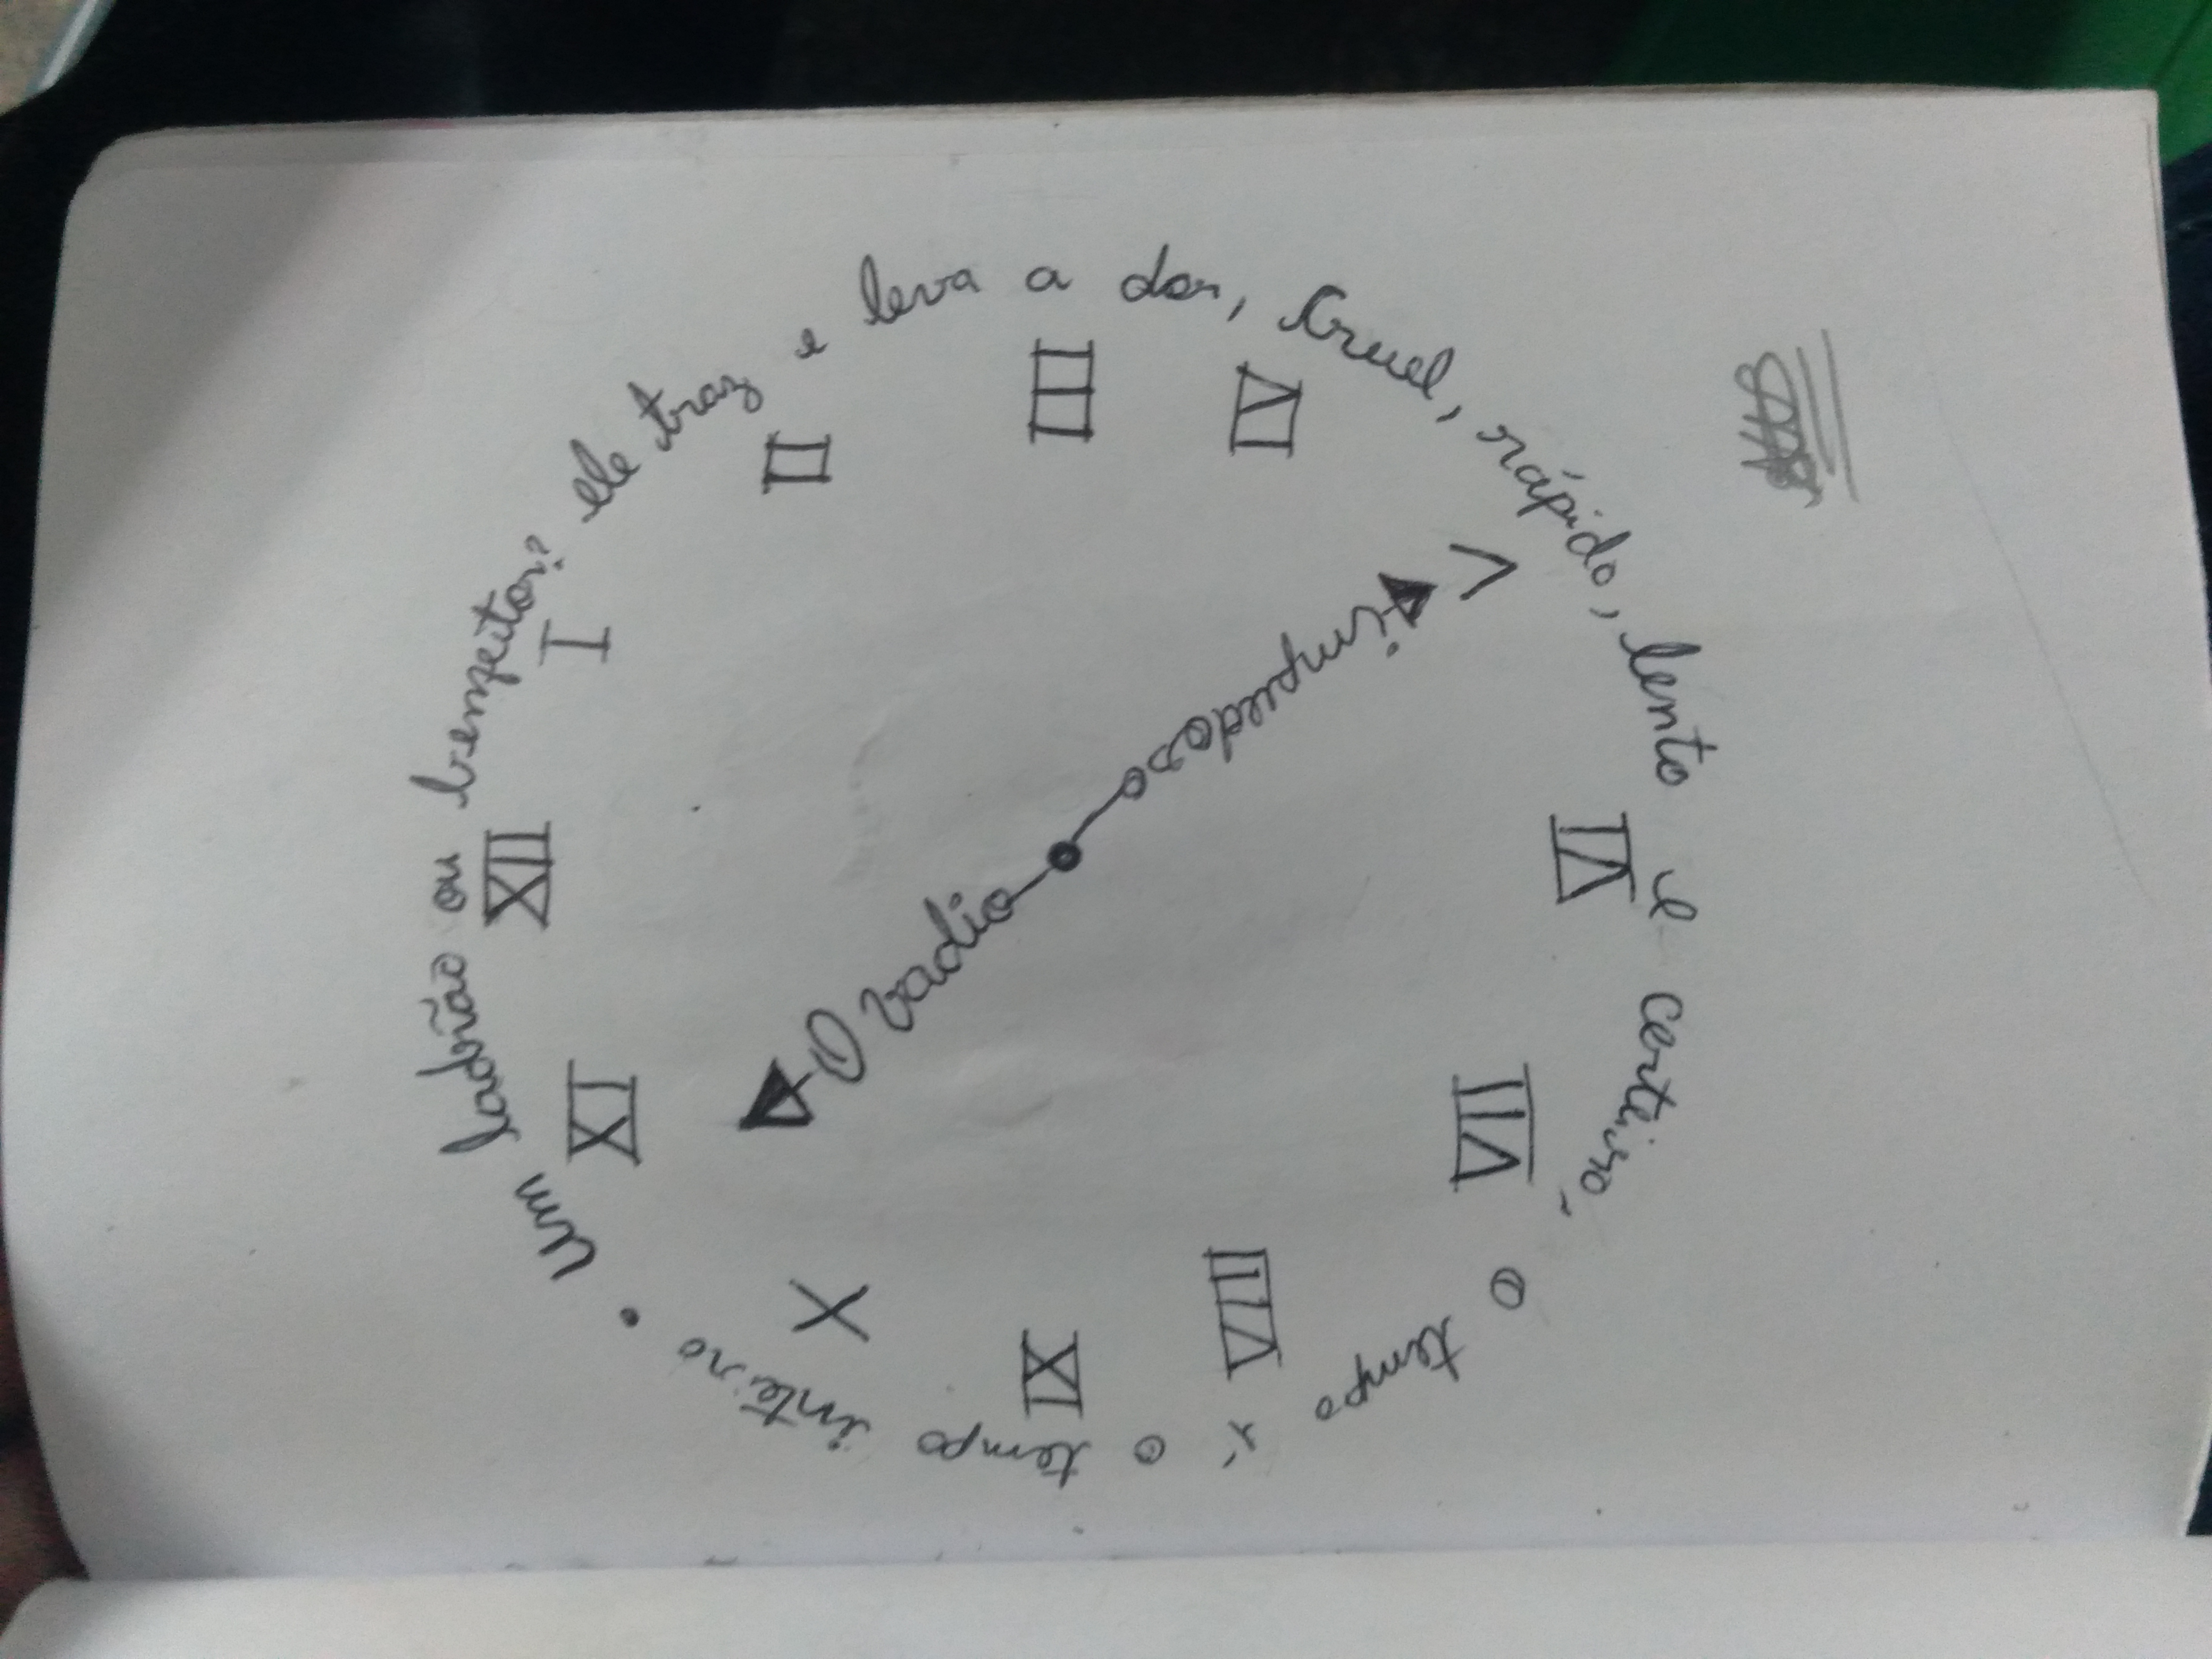 um ladrão ou benfeitor? ele traz e leva a dor, Cruel, rápido, lento e certeiro, o tempo é o tempo inteiro.
XII
I
II
III
IV
V
VI
VII
VIII
IX
X
XI
O Vadio
impiedoso